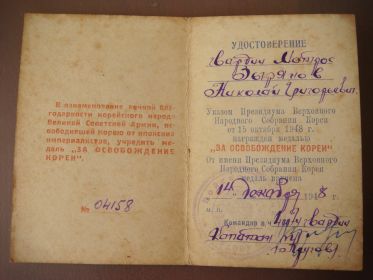 В ознаменование вечной бла-
годарности корейского народа
Великой Советской Армии, ос-
вободившей Корею от японских
империалистов, учредить ме-
даль „ЗА ОСВОБОЖДЕНИЕ
КОРЕИ“
№ 04158
УДОСТОВЕРЕНИЕ
Гвардии
Николай Григорьевич
Указом Президиума Верховного
Народного Собрания Кореи
от 15 октября 1948 г.
награжден медалью
„ЗА ОСВОБОЖДЕНИЕ КОРЕИ“
От имени Президиума Верховного
Народного Собрания Кореи
медаль вручена
14 декабря 1948
м/п.
Командир в/ч гвардии
Капитан